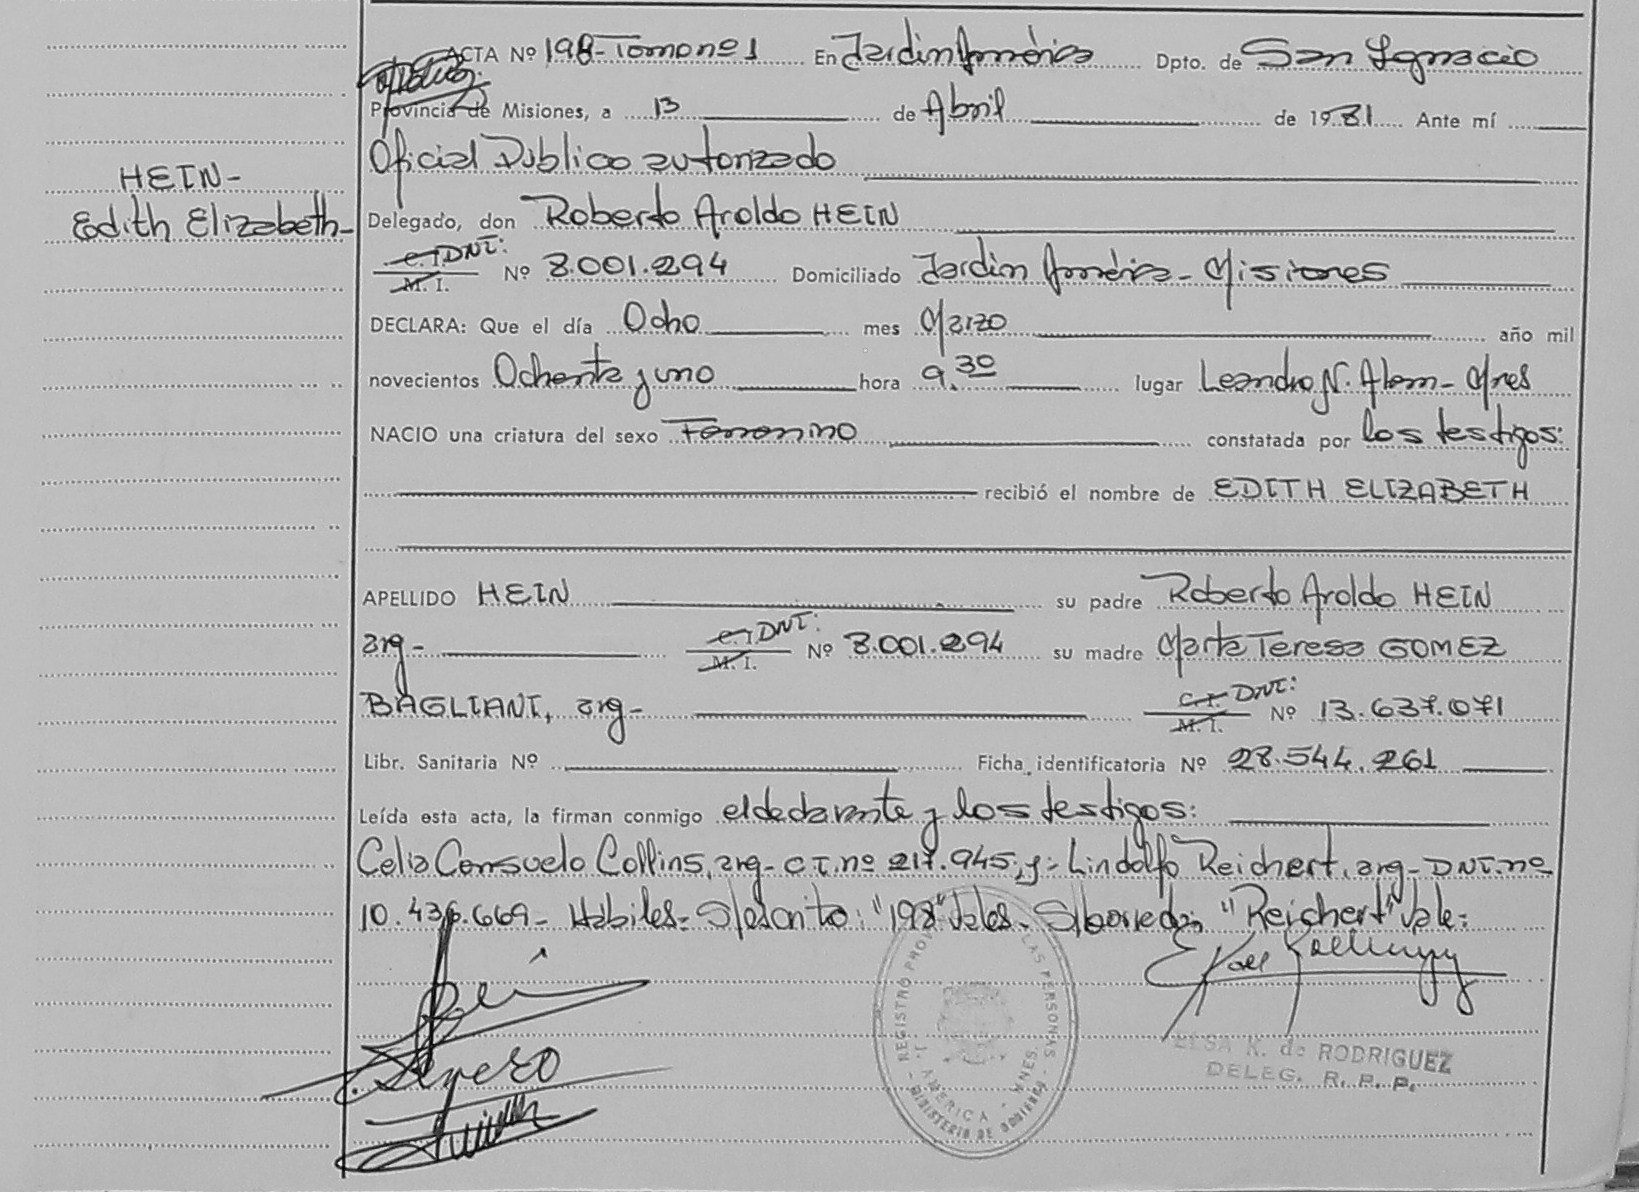 ACTA Nº 198- Tomo nº 1 En Jardín América Dpto. de San Ignacio
Provincia de Misiones, a 13 de Abril de 1981 Ante mí
Oficial Público autorizado
HEIN-
Edith Elizabeth-
Delegado, don Roberto Aroldo HEIN
C.I. DNI:
M. I. Nº 8.001.294 Domiciliado Jardín América- Misiones
DECLARA: Que el día Ocho mes Marzo año mil
novecientos Ochenta y uno hora 9.30 lugar Leandro N. Alem- Mnes
NACIO una criatura del sexo Femenino constatada por los testigos:
recibió el nombre de EDITH ELIZABETH
APELLIDO HEIN su padre Roberto Aroldo HEIN
arg- C.I. DNI: M. I. Nº 8.001.294 su madre Marta Teresa GOMEZ
BAGLIANI, arg- C.I. DNI: M. I. Nº 13.637.071
Libr. Sanitaria Nº Ficha identificatoria Nº 28.544.261
Leída esta acta, la firman conmigo el declarante y los testigos:
Celia Consuelo Collins, arg- C.I. nº 217.945, y:- Lindolfo Reichert, arg- DNI. nº
10.436.669- Hábiles- S/escrito: "198" Vale- S/borrado: "Reichert" Vale:
REGISTRO LAS PERSONAS
J. AMERICA - MNES.
MINISTERIO DE GOBIERNO
ELSA K. de RODRIGUEZ
DELEG. R. P. P.